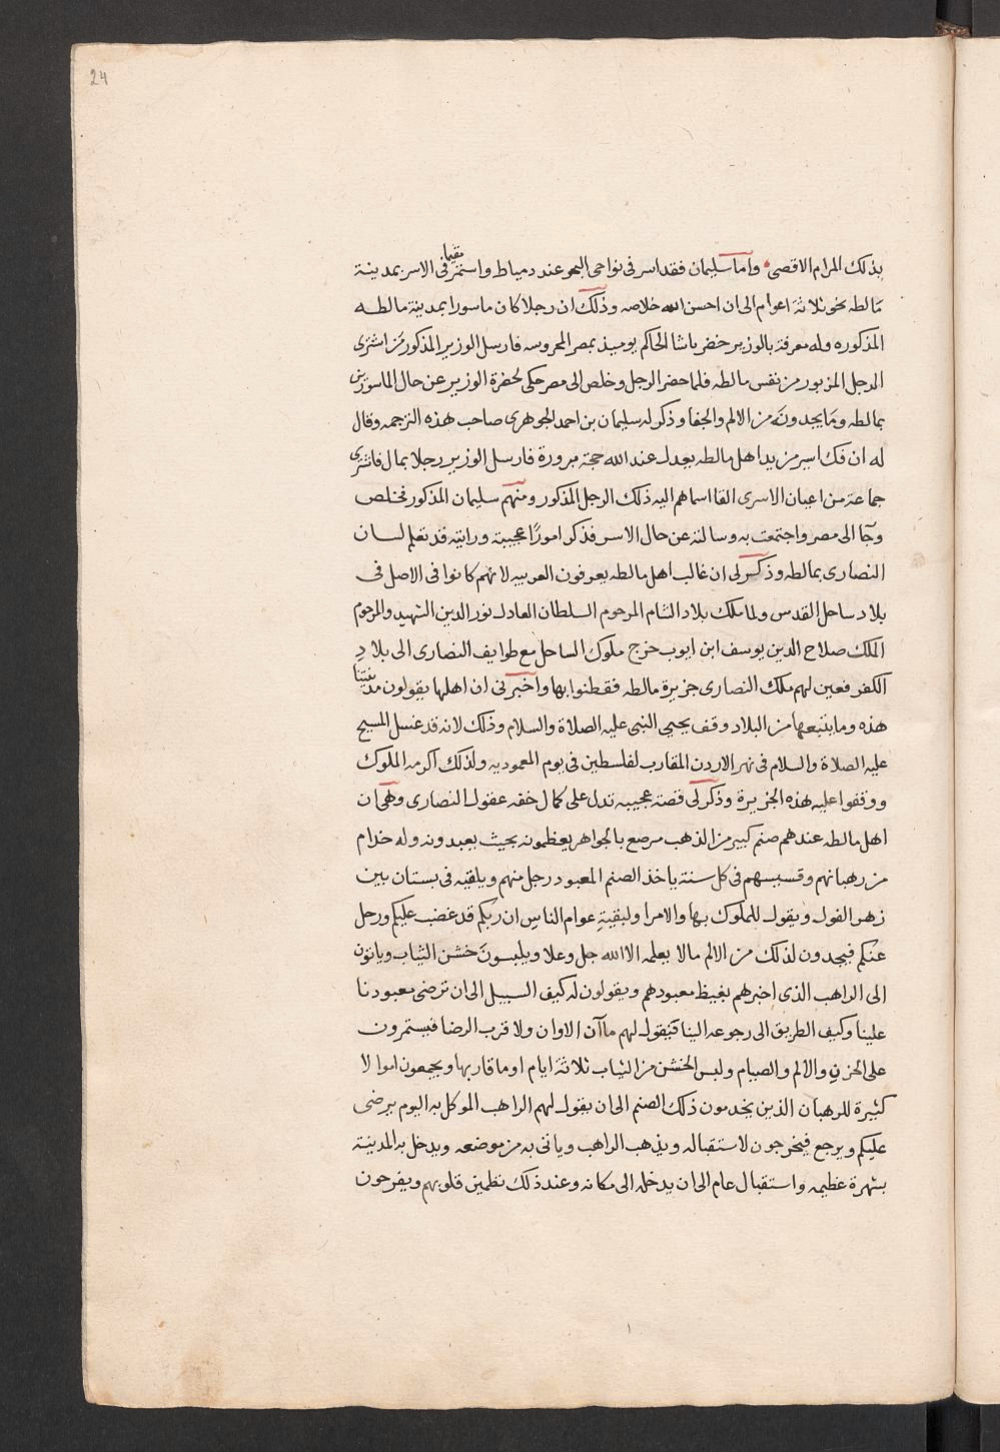 24
بذلك المرام الاقصى واما سليمان فقد اسر فى نواحى البحر عند دمياط واستمر مقيما فى الاسر بمدينة
مالطه نحو ثلاثة اعوام الى ان احسن الله خلاصه وذلك ان رجلا كان ماسورا بمدينة مالطه
المذكوره وله معرفة بالوزير خضر باشا الحاكم يوميذ بمصر المحروسه فارسل الوزير المذكور من اشترى
الرجل المزبور من نفس مالطه فلما حضر الرجل وخلص الى مصر حكى لحضرة الوزير عن حال الماسورين
بمالطه وما يجدونه من الالم والجفا وذكر له سليمان بن احمد الجوهرى صاحب هذه الترجمه وقال
له ان فك اسير من يد اهل مالطه يعدل عند الله حجة مبرورة فارسل الوزير رجلا بمال فاشترى
جماعة من اعيان الاسرى القا اسماهم اليه ذلك الرجل المذكور ومنهم سليمان المذكور فخلص
وجآ الى مصر واجتمعت به وسالته عن حال الاسر فذكر امورًا عجيبة ورايته قد تعلم لسان
النصارى بمالطه وذكر لى ان غالب اهل مالطه يعرفون العربيه لانهم كانوا فى الاصل فى
بلاد ساحل القدس ولما ملك بلاد الشام المرحوم السلطان العادل نور الدين الشهيد والمرحوم
الملك صلاح الدين يوسف ابن ايوب خرج ملوك الساحل مع طوايف النصارى الى بلاد
الكفر فعين لهم ملك النصارى جزيرة مالطه فقطنوا بها واخبرنى ان اهلها يقولون مدينتنا
هذه وما يتبعها من البلاد وقف يحيى النبى عليه الصلاة والسلام وذلك لانه قد غسل المسيح
عليه الصلاة والسلام فى نهر الاردن المقارب لفلسطين فى يوم المعموديه ولذلك اكرمه الملوك
ووقفوا عليه هذه الجزيرة وذكر لى قصة عجيبه تدل على كمال خفه عقول النصارى وهى ان
اهل مالطه عندهم صنم كبير من الذهب مرصع بالجواهر يعظمونه بحيث يعبدونه وله خدام
من رهبانهم وقسيسهم فى كل سنة ياخذ الصنم المعبود رجل منهم ويلقيه فى بستان بين
زهر الفول ويقول للملوك بها والامرا ولبقية عوام الناس ان ربكم قد غضب عليكم ورحل
عنكم فيجدون لذلك من الالم مالا يعلمه الا الله جل وعلا ويلبسون خشن الثياب وياتون
الى الراهب الذى اخبرهم بغيظ معبودهم ويقولون له كيف السبيل الى ان ترضى معبودنا
علينا وكيف الطريق الى رجوعه الينا فيقول لهم ما آن الاوان ولا قرب الرضا فيستمرون
على الحزن والالم والصيام ولبس الخشن من الثياب ثلاثة ايام او ما قاربها ويجمعون اموالا
كثيرة للرهبان الذين يخدمون ذلك الصنم الى ان يقول لهم الراهب الموكل به اليوم يرضى
عليكم ويرجع فيخرجون لاستقباله ويذهب الراهب وياتى به من موضعه ويدخل به المدينة
بشهرة عظيمه واستقبال عام الى ان يدخله الى مكانه وعند ذلك تطمين قلوبهم ويفرحون